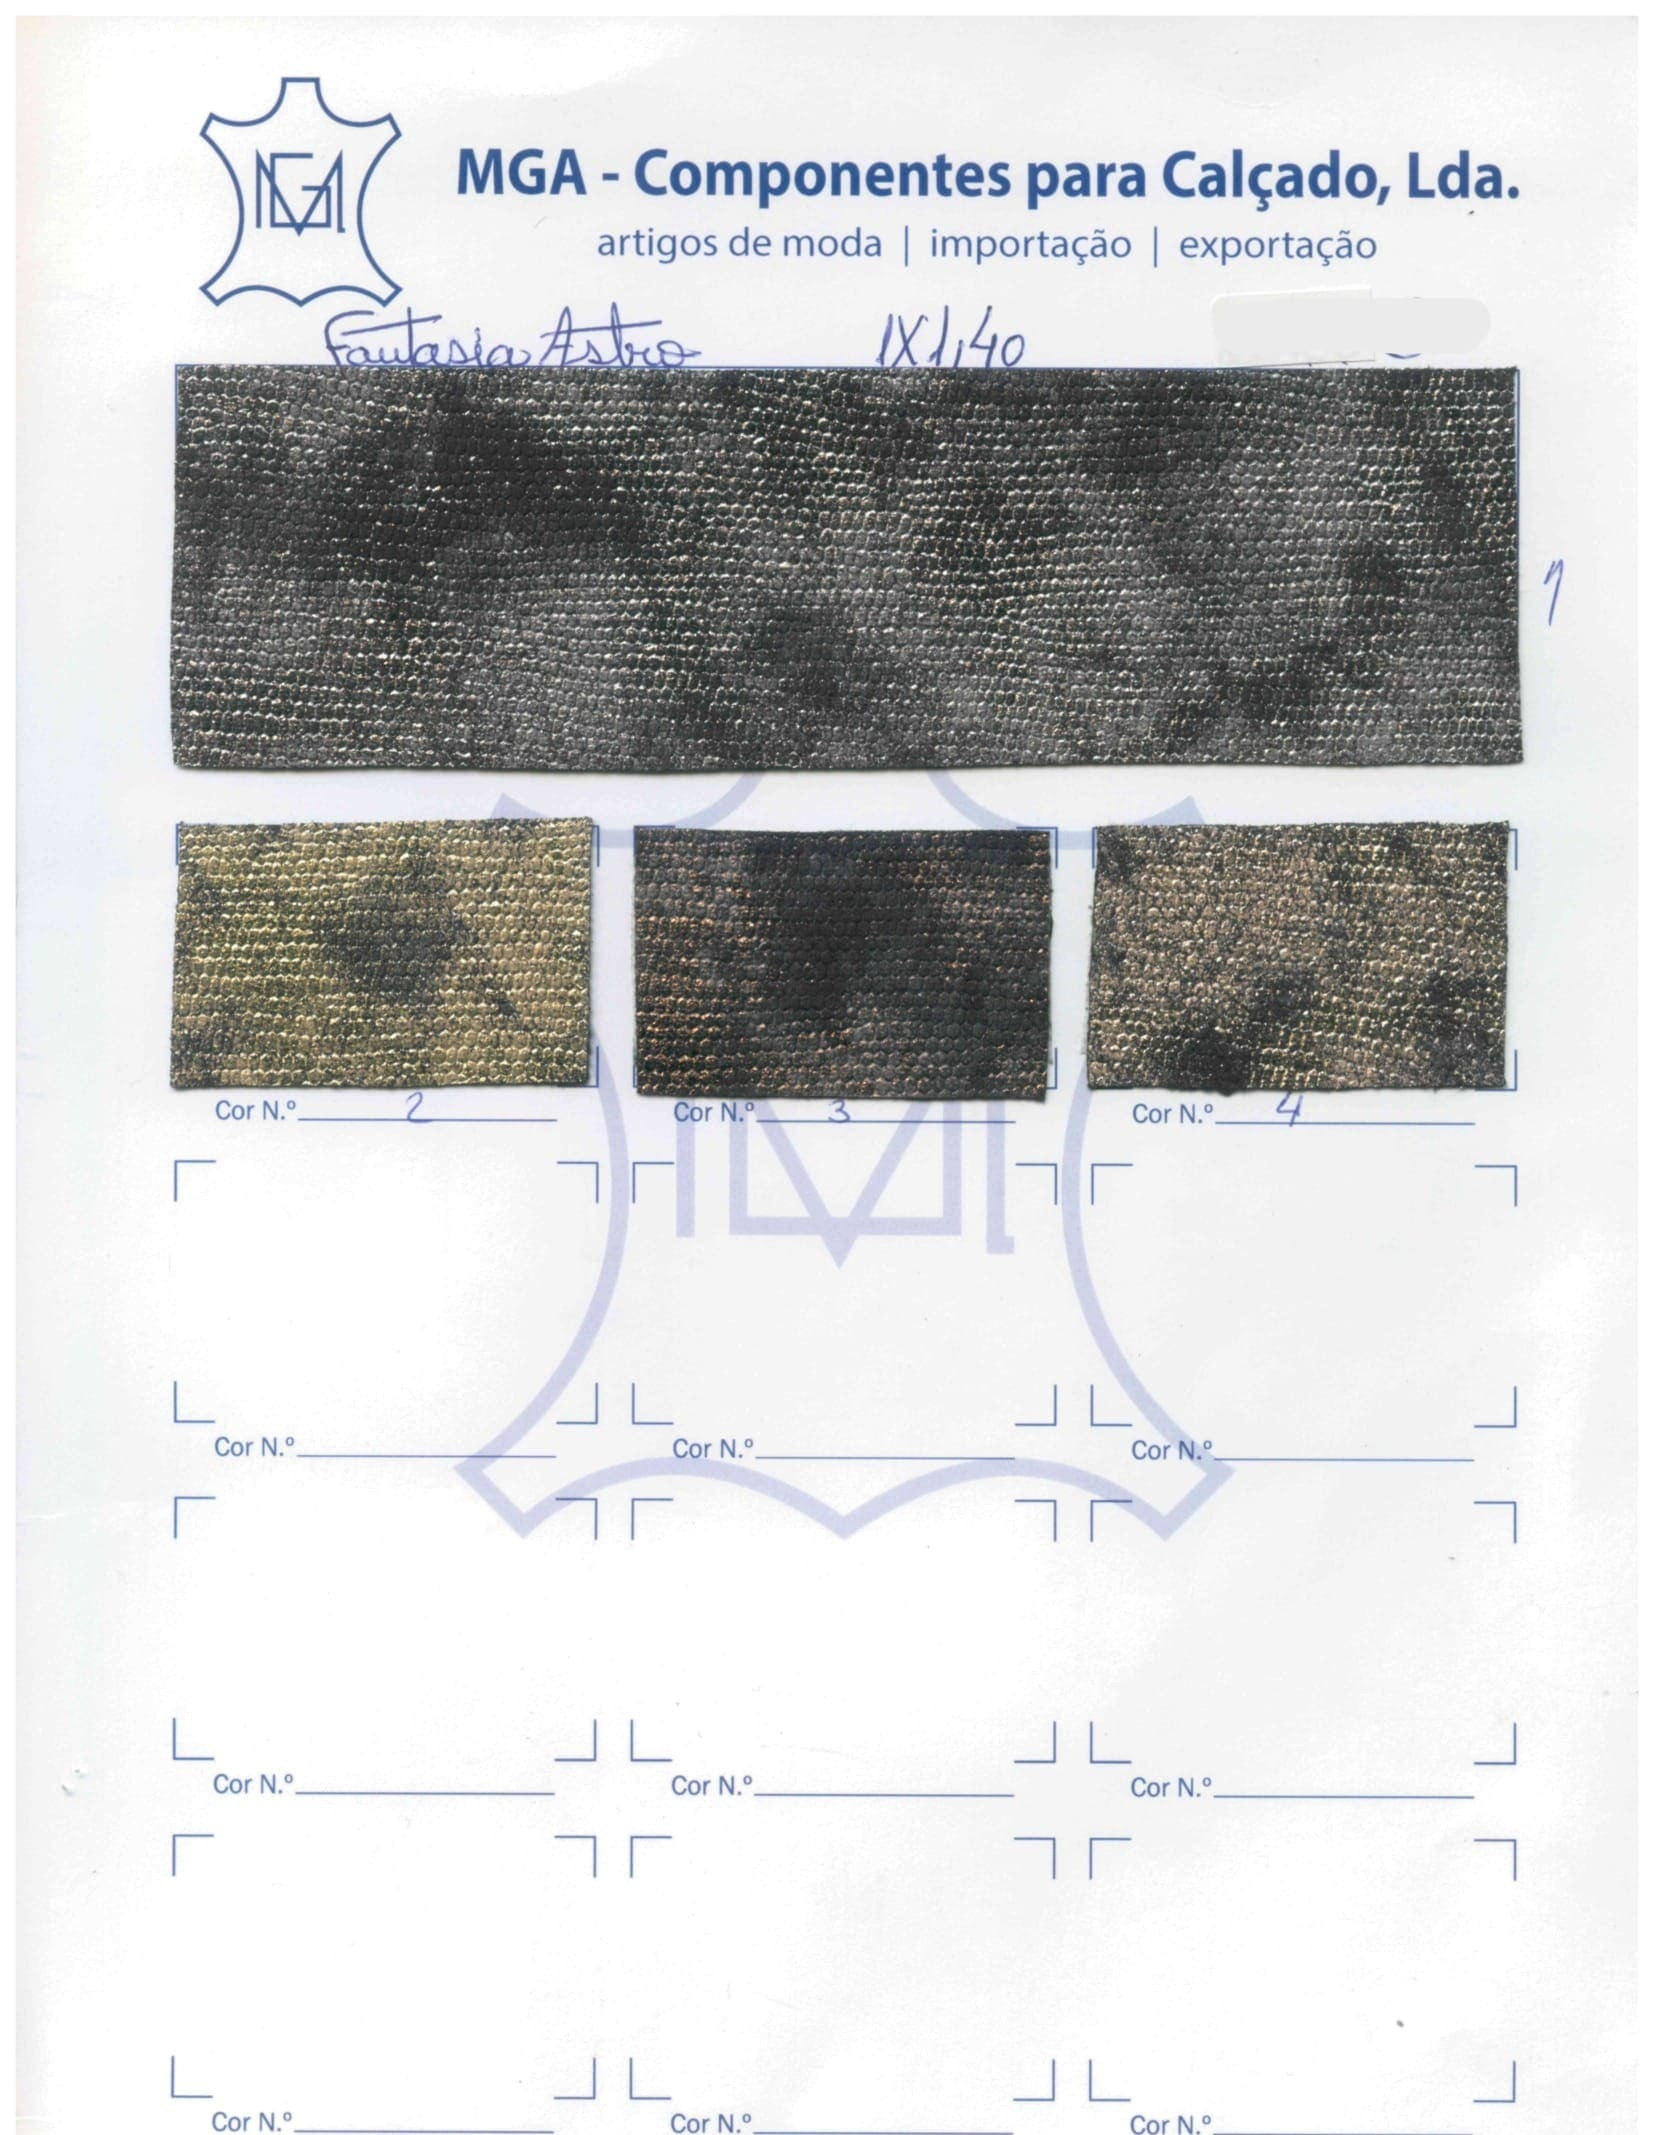 MGA
MGA - Componentes para Calçado, Lda.
artigos de moda | importação | exportação
Fantasia Astro 1X1,40
1
Cor N.º 2 Cor N.º 3 Cor N.º 4
Cor N.º Cor N.º Cor N.º
Cor N.º Cor N.º Cor N.º
Cor N.º Cor N.º Cor N.º